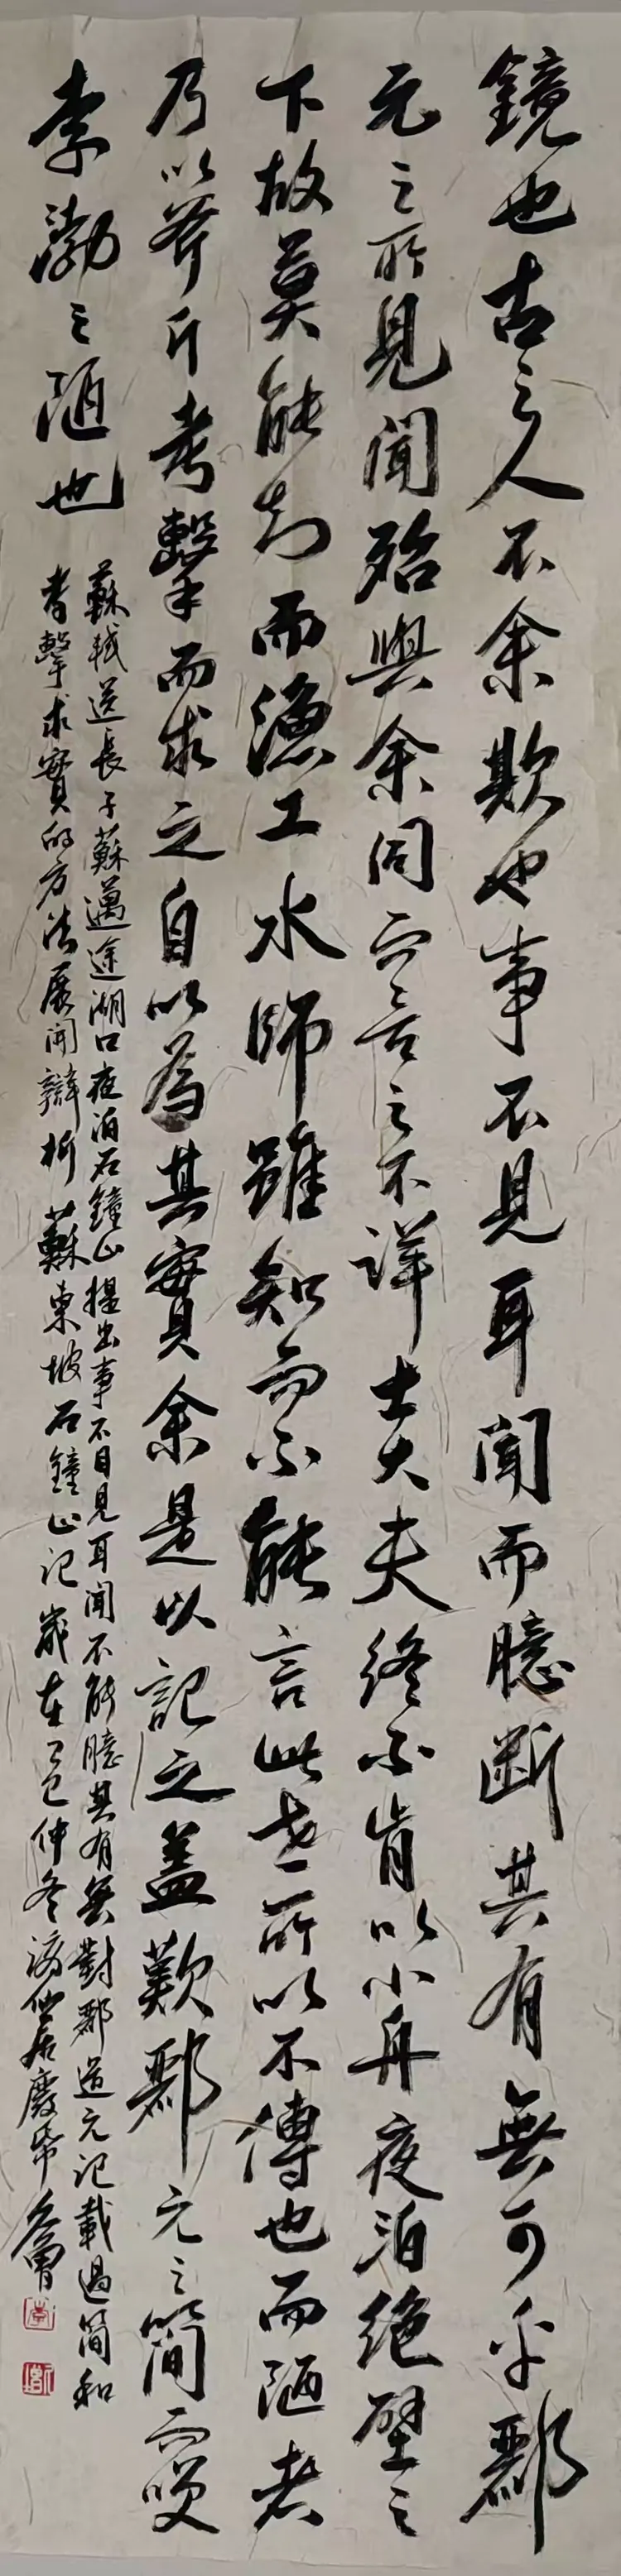 鏡也古之人不余欺也事不見耳聞而臆斷其有無可乎酈
元之所見聞殆與余同而言之不詳士大夫終不肯以小舟夜泊絕壁之
下故莫能知而漁工水師雖知而不能言此世所以不傳也而陋者
乃以斧斤考擊而求之自以為其實余是以記之蓋歎酈元之簡而唉
李渤之陋也
蘇軾送長子蘇邁途湖口夜泊石鐘山提出事不目見耳聞不能臆其有無對酈道元記載過簡和
考擊求實的方法展開辯析蘇東坡石鐘山記歲在乙巳仲冬